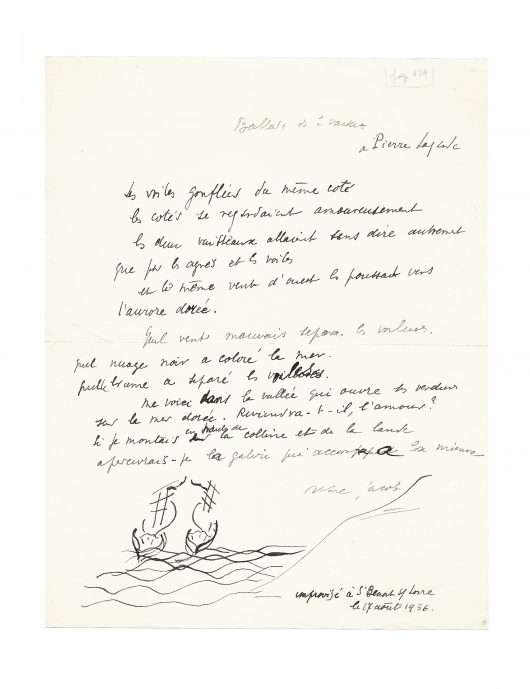 Ballade de 2 vaisseaux
a Pierre Lagarde
Les voiles gonflées du même coté
les cotés se regardaient amoureusement
les deux vaisseaux allaient sans dire autrement
que par les agrès et les voiles
et le même vent d'ouest les poussait vers
l'aurore dorée.
Quel vents mauvais sépara les voileurs.
quel nuage noir a coloré la mer.
quelle brume a séparé les
me voici dans la vallée qui ouvre ses verdeurs
sur la mer dorée. Reviendra-t-il, l'amour?
Si je montais en haut de la colline et de la lande
apercevrais-je la galère qui la mienne
Max Jacob
improvisé à St Benoit s/ Loire
le 17 août 1936.